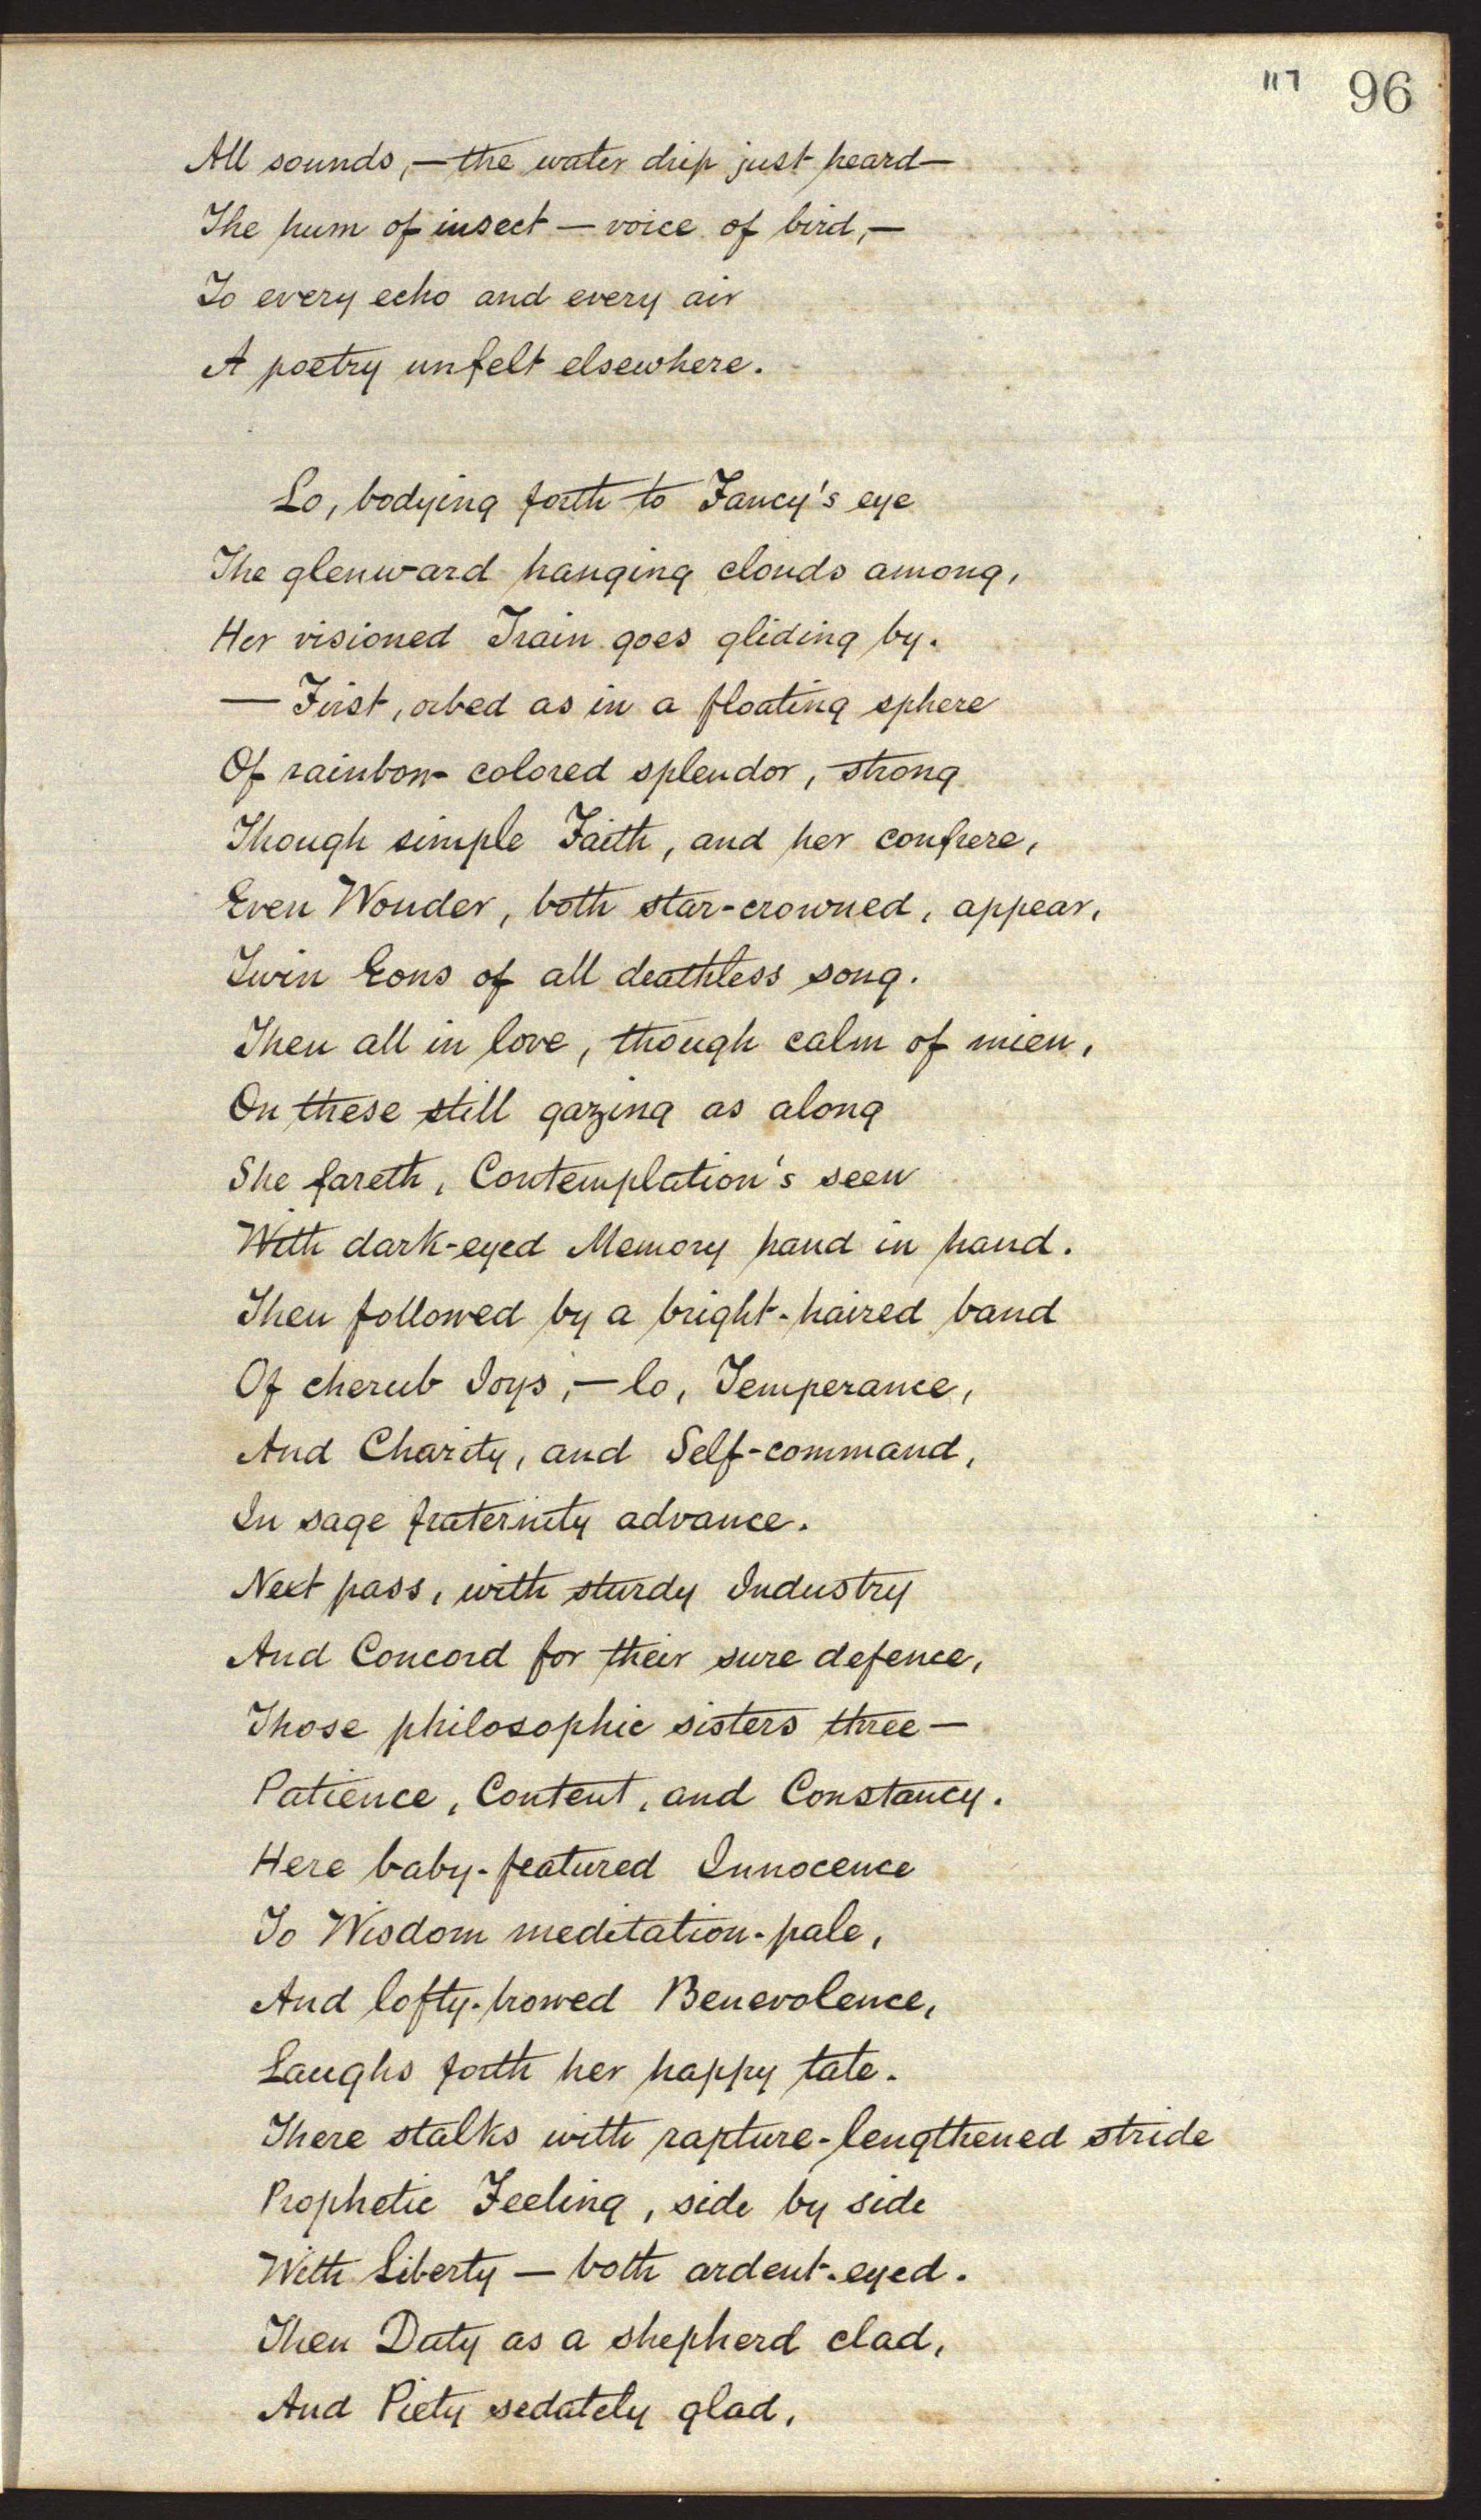 117 96
All sounds,—the water drip just heard—
The hum of insect—voice of bird,—
To every echo and every air
A poetry unfelt elsewhere.
Lo, bodying forth to Fancy's eye
The glenward hanging clouds among,
Her visioned Train goes gliding by.
— First, orbed as in a floating sphere
Of rainbow-colored splendor, strong
Though simple Faith, and her confrere,
Even Wonder, both star-crowned, appear,
Twin Eons of all deathless song.
Then all in love, though calm of mien,
On these still gazing as along
She fareth, Contemplation's seen
With dark-eyed Memory hand in hand.
Then followed by a bright-haired band
Of cherub Joys,—lo, Temperance,
And Charity, and Self-command,
In sage fraternity advance.
Next pass, with sturdy Industry
And Concord for their sure defence,
Those philosophic sisters three—
Patience, Content, and Constancy.
Here baby-featured Innocence
To Wisdom meditation-pale,
And lofty-browed Benevolence,
Laughs forth her happy tale.
There stalks with rapture-lengthened stride
Prophetic Feeling, side by side
With Liberty — both ardent-eyed.
Then Duty as a shepherd clad,
And Piety sedately glad,